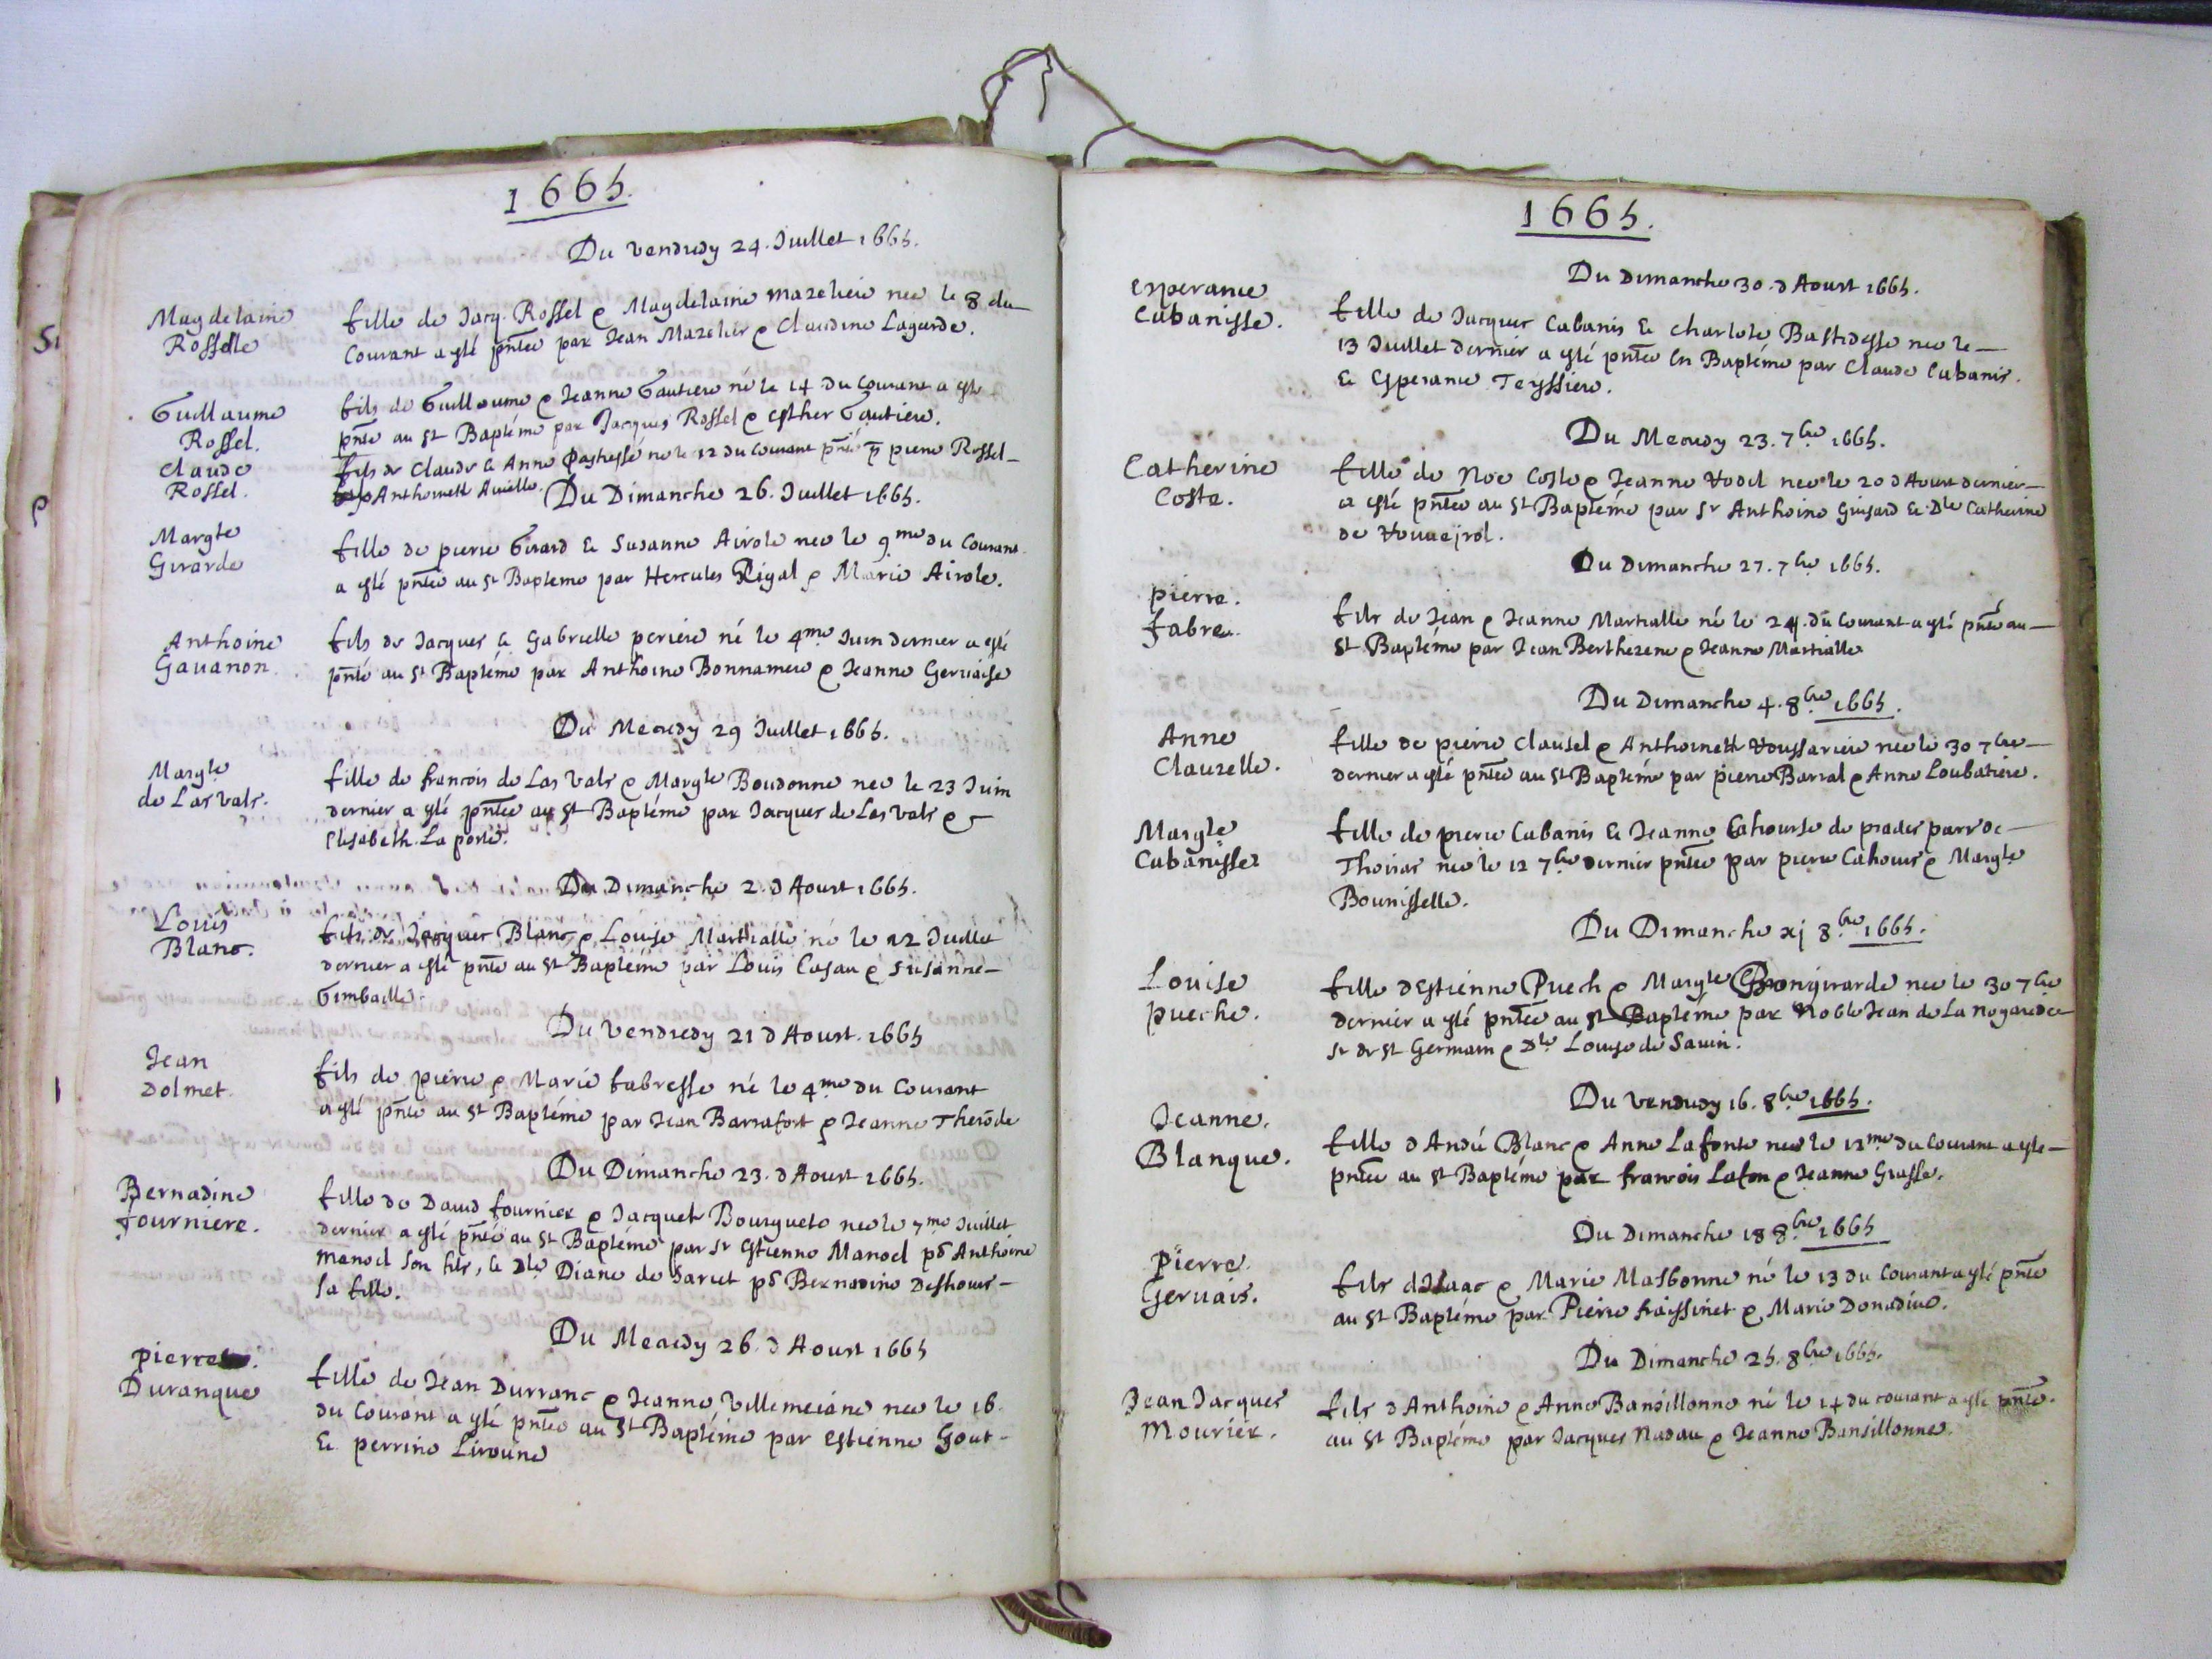 1665.
Du vendredy 24. Juillet 1665.
Magdelaine
Rosselle
fille de Jacq. Rossel & Magdelaine mazeliere nee le 8 du
Courant a esté pntée par Jean Mazelier & Claudine Lagarde.
Guillaume
Rossel.
fils de Guillaume & Jeanne Gautiere né le 14 du Courant a esté
pnté au St Baptéme par Jacques Rossel & esther Gautiere.
Claude
Rossel.
fils de Claude & Anne né le 12 du Courant pnté p pierre Rossel
Anthoinette
Du Dimanche 26. Juillet 1665.
Margte
Girarde
fille de pierre Girard & Susanne Airole nee le 9me du Courant
a esté pntée au St Bapteme par Hercules Rigal & Marie Airole.
Anthoine
Gavanon.
fils de Jacques & Gabrielle periere né le 4me Juin dernier a esté
pnté au St Baptéme par Anthoine Bonnamere & Jeanne Gervaise
Du Mecredy 29 Juillet 1665.
Margte
de Las Vals.
fille de francois de Las Vals & Margte Boudonne nee le 23 Juin
dernier a esté pntée au St Baptéme par Jacques de Las Vals &
Elisabeth La porte.
Du Dimanche 2. d Aoust 1665.
Louis
Blanc.
fils de Jacques Blanc & Louise Martialle né le 12 Juillet
dernier a esté pnté au St Baptéme par Louis Casau & Susanne
Gimbaille.
Du Vendredy 21 d Aoust. 1665
Jean
Dolmet.
fils de pierre & Marie fabresse né le 4me du Courant
a esté pnté au St Baptéme par Jean Barrafort & Jeanne Therode
Du Dimanche 23. d Aoust 1665.
Bernadine
fourniere.
fille de David fournier & Jacquete Bourguete nee le 7me Juillet
dernier a esté pntée au St Baptéme par Sr Estienne Manoel po Anthoine
manoel son fils, & Dle Diane de Sarret po Bernadine Deshours
sa fille.
Du Mecredy 26. d Aoust 1665
pierre
Duranque
fille de Jean Durranc & Jeanne Villemeiane nee le 16.
du Courant a esté pntée au St Baptéme par Estienne Gout
& perrine Liroune
1665.
Du Dimanche 30. d Aoust 1665.
Esperance
Cabanisse.
fille de Jacques Cabanis & Charlote Bastidesse nee le
13 Juillet dernier a esté pntée en Baptéme par Claude Cabanis.
& Esperance Teyssiere.
Du Mecredy 23. 7bre 1665.
Catherine
Coste.
fille de Noe Coste & Jeanne nee le 20 d Aoust dernier
a esté pntée au St Baptéme par Sr Anthoine Grisard & Dle Catherine
de
Du Dimanche 27. 7bre 1665.
pierre.
fabre.
fils de Jean & Jeanne Martialle né le 24. du Courant a esté pnté au
St Baptéme par Jean Berthezene & Jeanne Martialle
Du Dimanche 4. 8bre 1665.
Anne
Clauzelle.
fille de pierre Clausel & Anthoinette Voussariere nee le 30 7bre
dernier a esté pntée au St Baptéme par pierre Barral & Anne Loubatiere.
Margte
Cabanisse
fille de pierre Cabanis & Jeanne Cahourse de prades parr de
Thoiras nee le 12 7bre dernier pntée par pierre Cahours & Margte
Bounisselle.
Du Dimanche xj 8bre 1665.
Louise
pueche.
fille d Estienne Puech & Margte Brongirarde nee le 30 7bre
dernier a esté pntée au St Baptéme par Noble Jean de La nogarede
Sr de St Germain & Dle Louise de Savin.
Du Vendredy 16. 8bre 1665.
Jeanne.
Blanque.
fille d André Blanc & Anne Lafonte nee le 12me du Courant a esté
pntée au St Baptéme par francois Lafon & Jeanne Grasse.
Du Dimanche 18 8bre 1665
Pierre
Gervais.
fils d Isaac & Marie Masbonne né le 13 du Courant a esté pnté
au St Baptéme par Pierre fraissinet & Marie Donadive.
Du Dimanche 25. 8bre 1665.
Jean Jacques
Mourier.
fils d Anthoine & Anne Bansillonne né le 14 du courant a esté pnté.
au St Baptéme par Jacques Nadau & Jeanne Bansillonne.